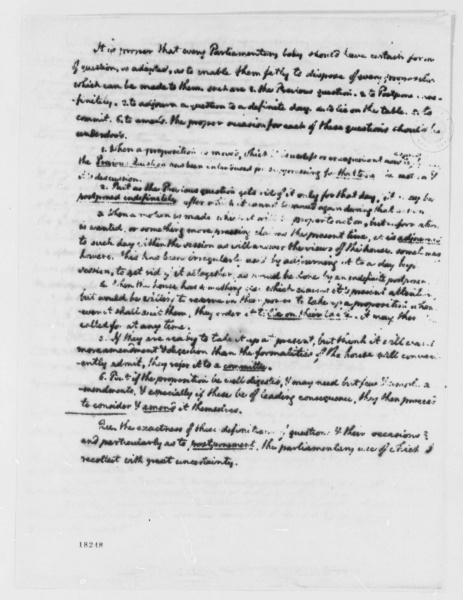 It is proper that every Parliamentary body should have certain forms
of question, so adapted, as to enable them fitly to dispose of every proposition
which can be made to them. such are 1. the Previous question. 2. to Postpone inde-
finitely. 3. to adjourn a question to a definite day. 4. to lie on the table. 5. to
commit. 6. to amend. the proper occasion for each of these questions should be
understood.
1. When a proposition is moved, which it is useless or inexpedient now to
the Previous Question has been introduced for suppressing for that time the motion &
it's discussion.
2. But as the Previous question gets rid of it only for that day, & it may be
postponed indefinitely after which it cannot be moved again during that session
3. When a motion is made which it will be proper to act on, but information
is wanted, or something more pressing claims the present time, it is adjourned
to such day within the session as will answer the views of the house
however. this has been irregularly used by adjourning it to a day beyond the
session, to get rid of it altogether, as would be done by an indefinite postponement
4. When the house has something else which claims it's present attention
but would be willing to reserve in their power to take up a proposition when-
ever it shall suit them, they order it to lie on their table. it may then be
called for at any time.
5. If they are ready to take it up at present, but think it will want
more amendment & digestion than the formalities of the house will conveni-
ently admit, they refer it to a committee.
6. But if the proposition be well digested, & may need but few & simple a-
mendments, & especially if these be of leading consequence, they then proceed
to consider & amend it themselves.
Qu. the exactness of these definitions of questions & their occasions?
and particularly as to postponement, the parliamentary use of which I
recollect with great uncertainty.
18248